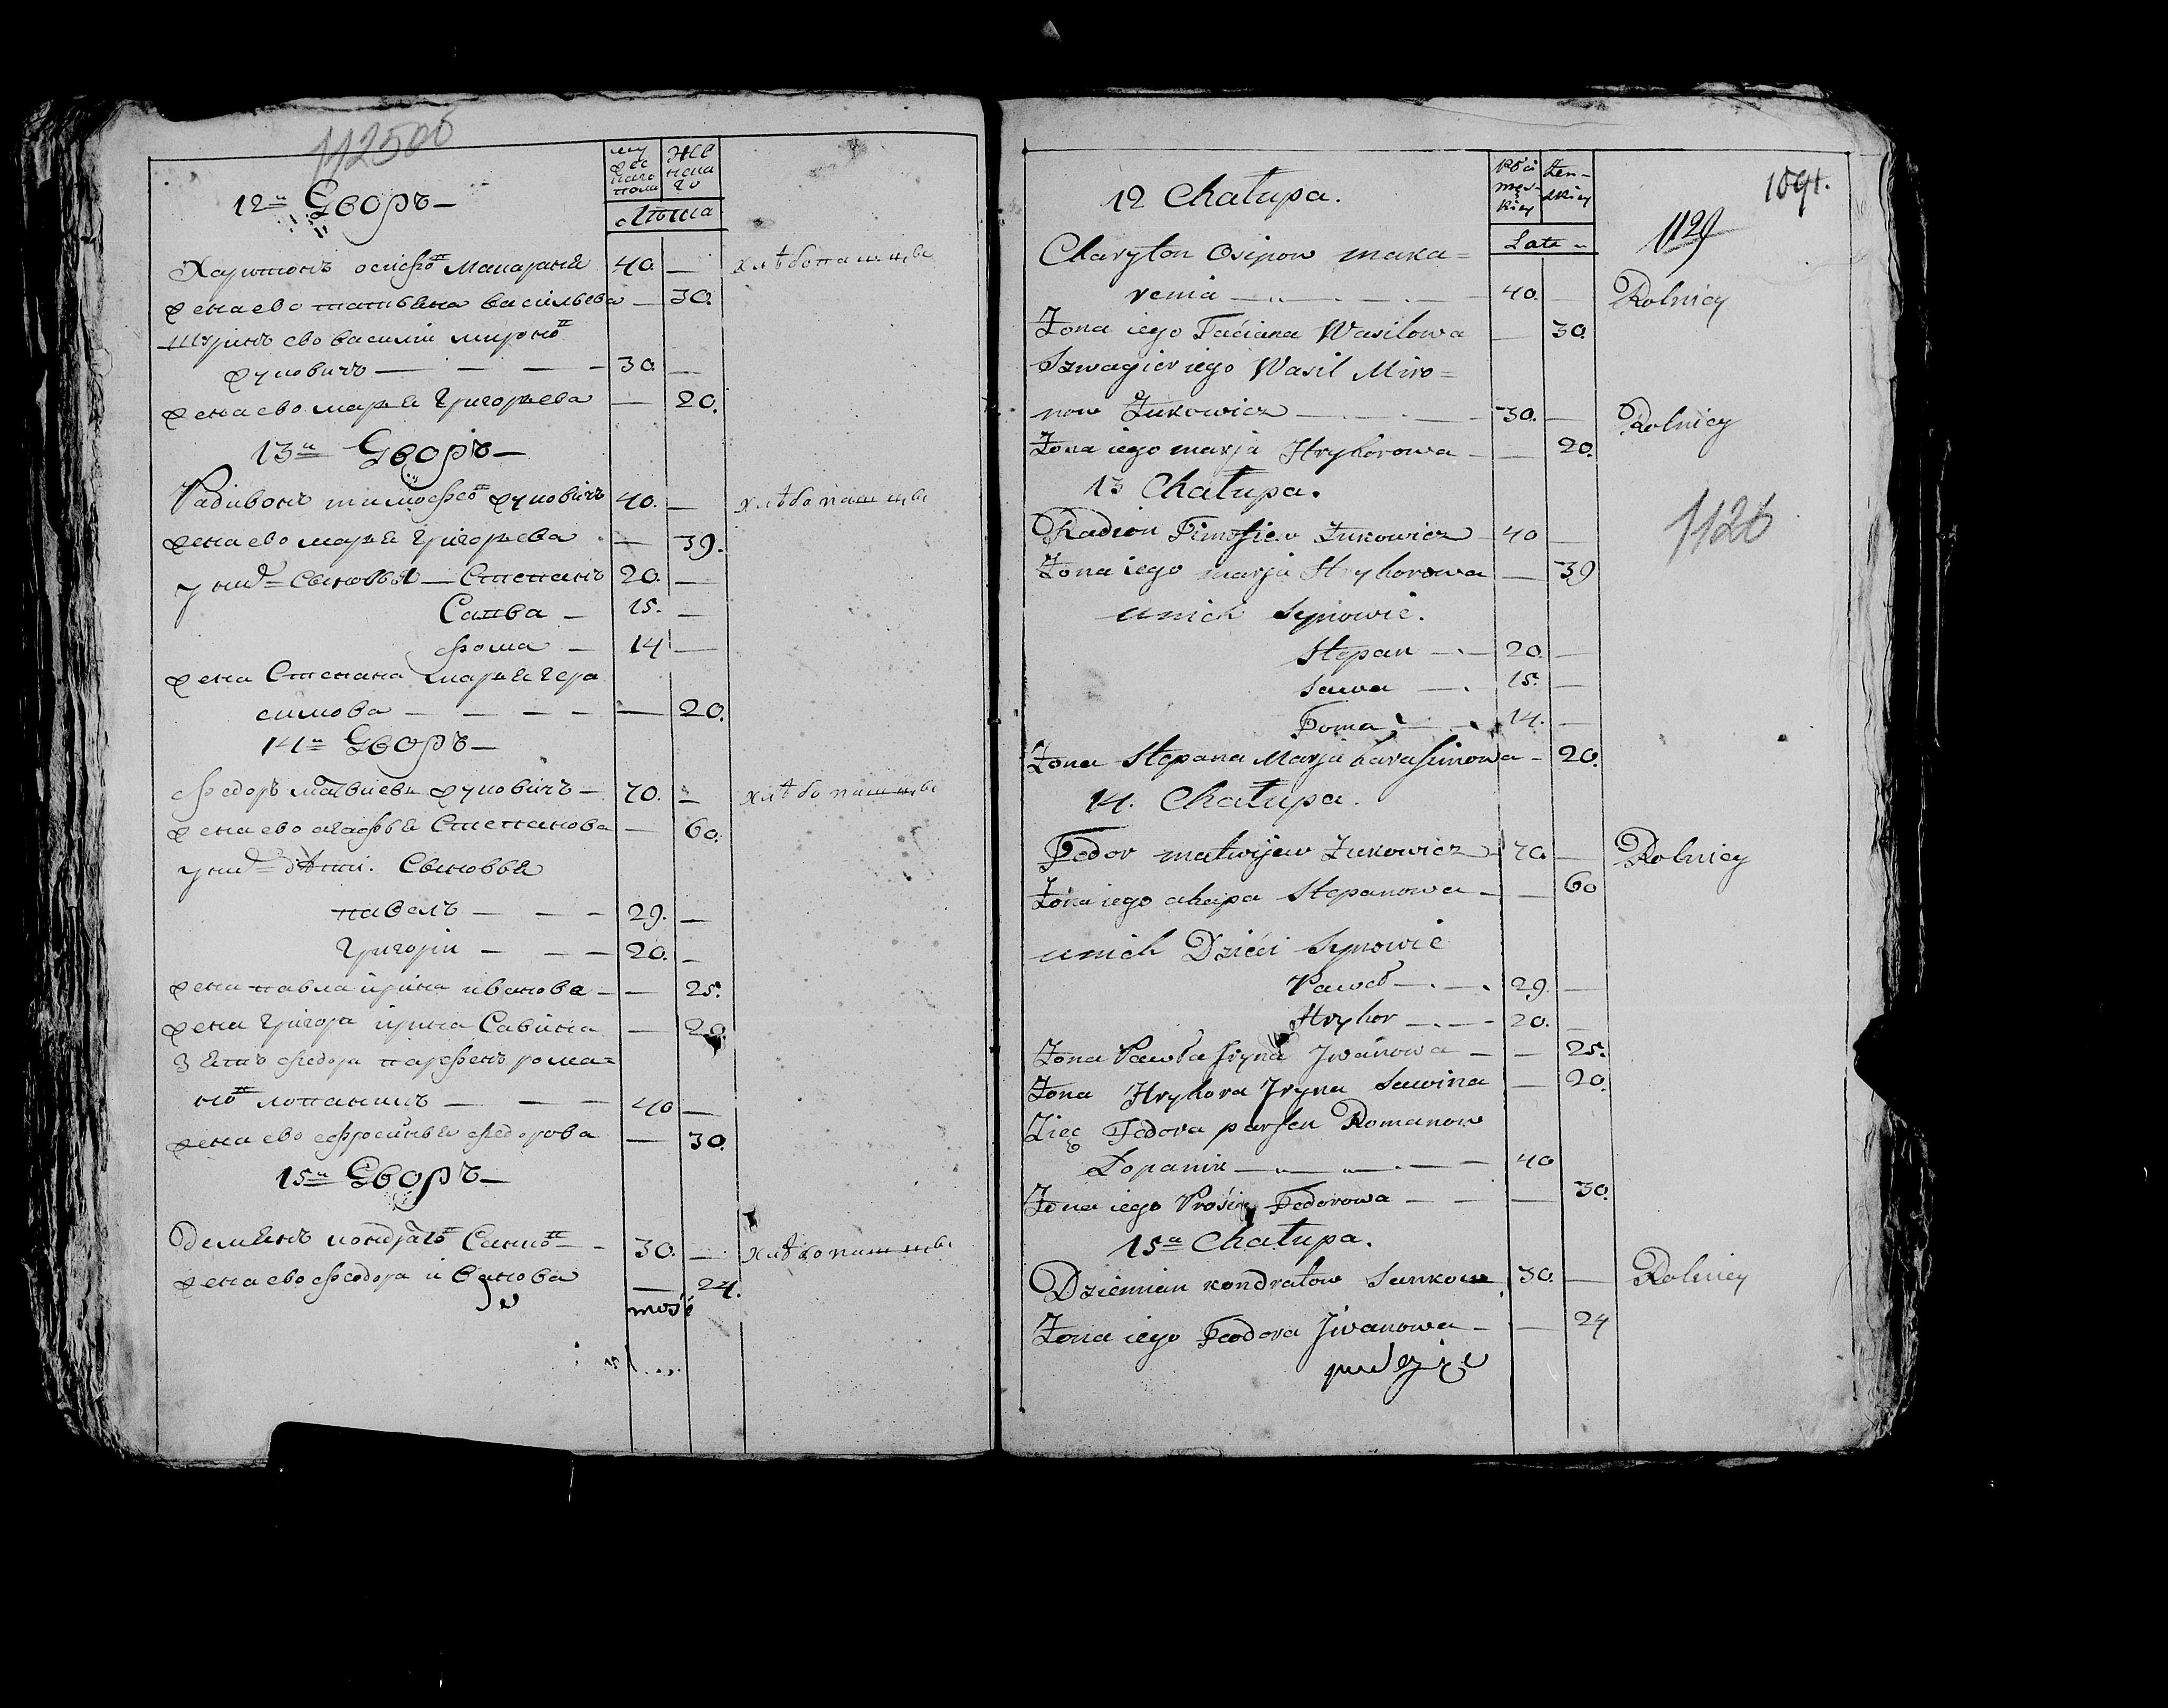 112506
12й Дворъ
му
жес
каго
пола
же
нска
го
Лѣта
Харитонъ осифоⷡ Макареня 40. — хлѣбопашцы
жена ево татьяна васильева — 30.
Шуринъ ево василии мироноⷡ
жуковичъ — 30. —
жена ево марья Григорьева — 20.
13й Дворъ
Радивонъ тимофеоⷡ жуковичъ 40. — хлѣбопашцы
жена ево марья Григорьева — 39.
у ниⷯ Сыновья — Степанъ 20. —
Савва — 15. —
фома — 14 —
жена Степана марья гера
симова — 20.
14й Дворъ
федоръ матвиевъ жуковичъ — 70. — хлѣбопашцы
жена ево агафья Степанова — 60.
у ниⷯ дѣти. Сыновья
павелъ — 29. —
Григорiи — 20. —
жена павла ирина иванова — 25.
жена Григора ирина Савина — 20
Зять федора парфенъ рома=
ноⷡ лопаникъ — 40 —
жена ево ефросинья федорова — 30.
15й Дворъ
Демьянъ кондратоⷡ Санкоⷡ — 30. — хлѣбопашцы
жена ево феодора иванова — 24.
12 Chałupa.
Płci
męs-
kiey
Żen-
skiey
Lata
1129
1126
Charyton Osipow maka=
renia — 40. — Rolnicy
Żona iego Taciana Wasilowa — 30.
Szwagier iego Wasil Miro=
now Żukowicz — 30. — Rolnicy
Żona iego marja Hryhorowa — 20.
13 Chałupa.
Radion Timofiew Żukowicz — 40 —
Żona iego marja Hryhorowa — 39
unich Synowie.
Stepan — 20. —
Sawa — 15. —
Foma — 14. —
Żona Stepana Marja harasimowa — 20.
14. Chałupa.
Fedor matwijew Żukowicz 70. — Rolnicy
Żona iego ahapa Stepanowa — 60
unich Dzieci Synowie
Paweł — 29 —
Hryhor — 20. —
Żona Pawła Jryna Jwanowa — 25.
Żona Hryhora Jryna Sawina — 20.
Zięc Fedora parfen Romanow
Łopanik — 40
Żona iego Prosia Fedorowa — 30.
15a Chałupa.
Dziemian kondratow Sankow 30. — Rolnicy
Żona iego Feodora Jwanowa — 24